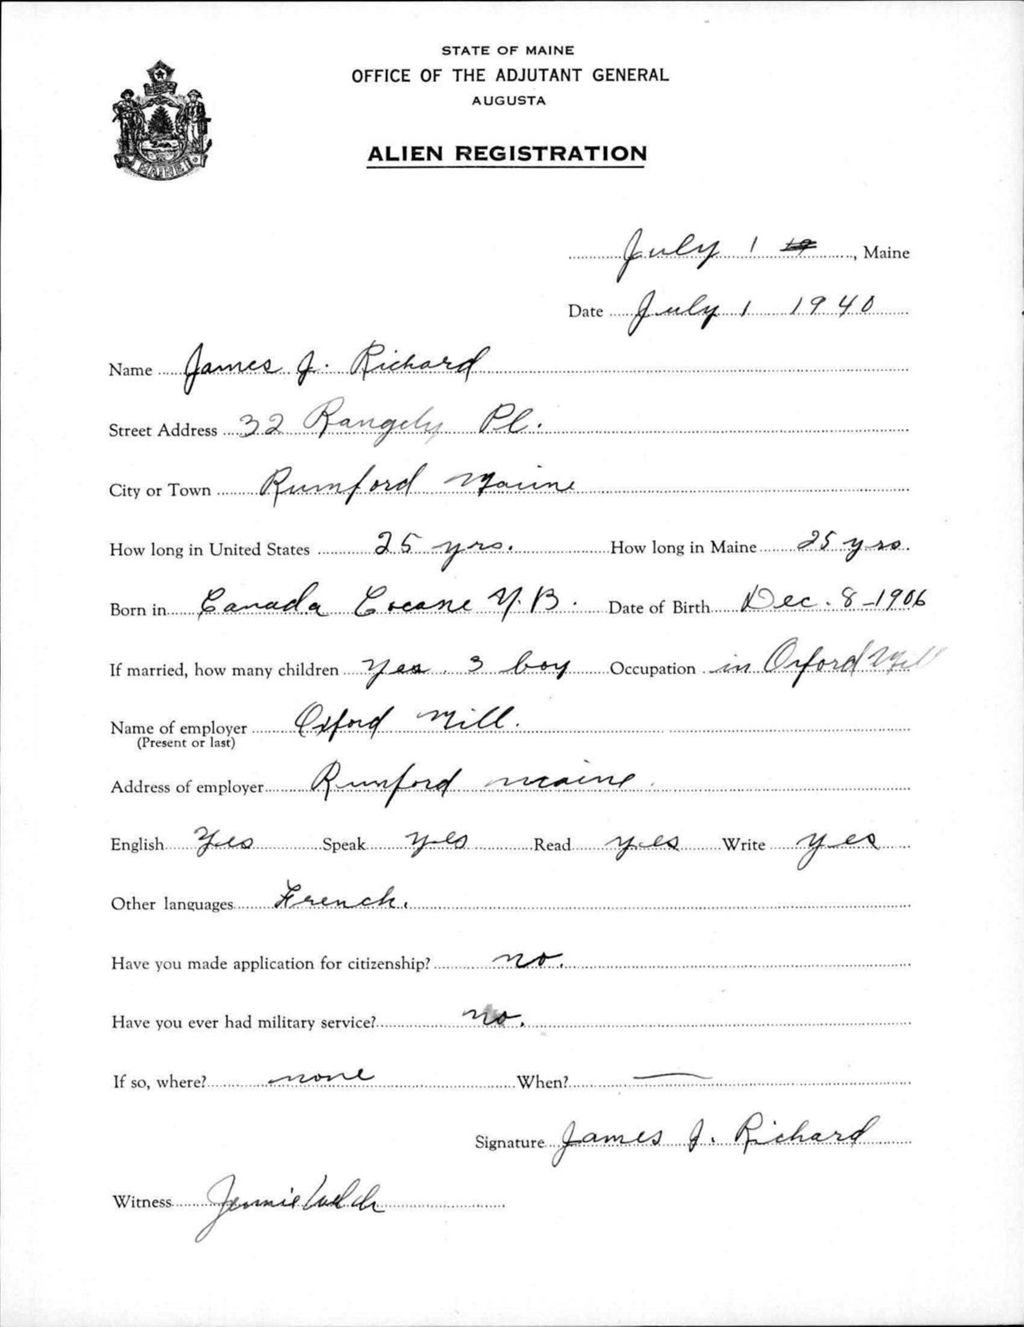 STATE OF MAINE
OFFICE OF THE ADJUTANT GENERAL
AUGUSTA
ALIEN REGISTRATION
July 1, Maine
Date July 1 1940
Name James J. Richard
Street Address 32 Rangely Pl.
City or Town Rumford Maine
How long in United States 25 yrs. How long in Maine 25 yrs.
Born in Canada Cocane N.B. Date of Birth Dec. 8-1906
If married, how many children Yes. 3 boy Occupation in Oxford Mill
Name of employer Oxford Mill.
(Present or last)
Address of employer Rumford maine.
English Yes Speak yes Read yes Write yes
Other languages French.
Have you made application for citizenship? no.
Have you ever had military service? no.
If so, where? none When? —
Signature James J. Richard
Witness Jennie Welch